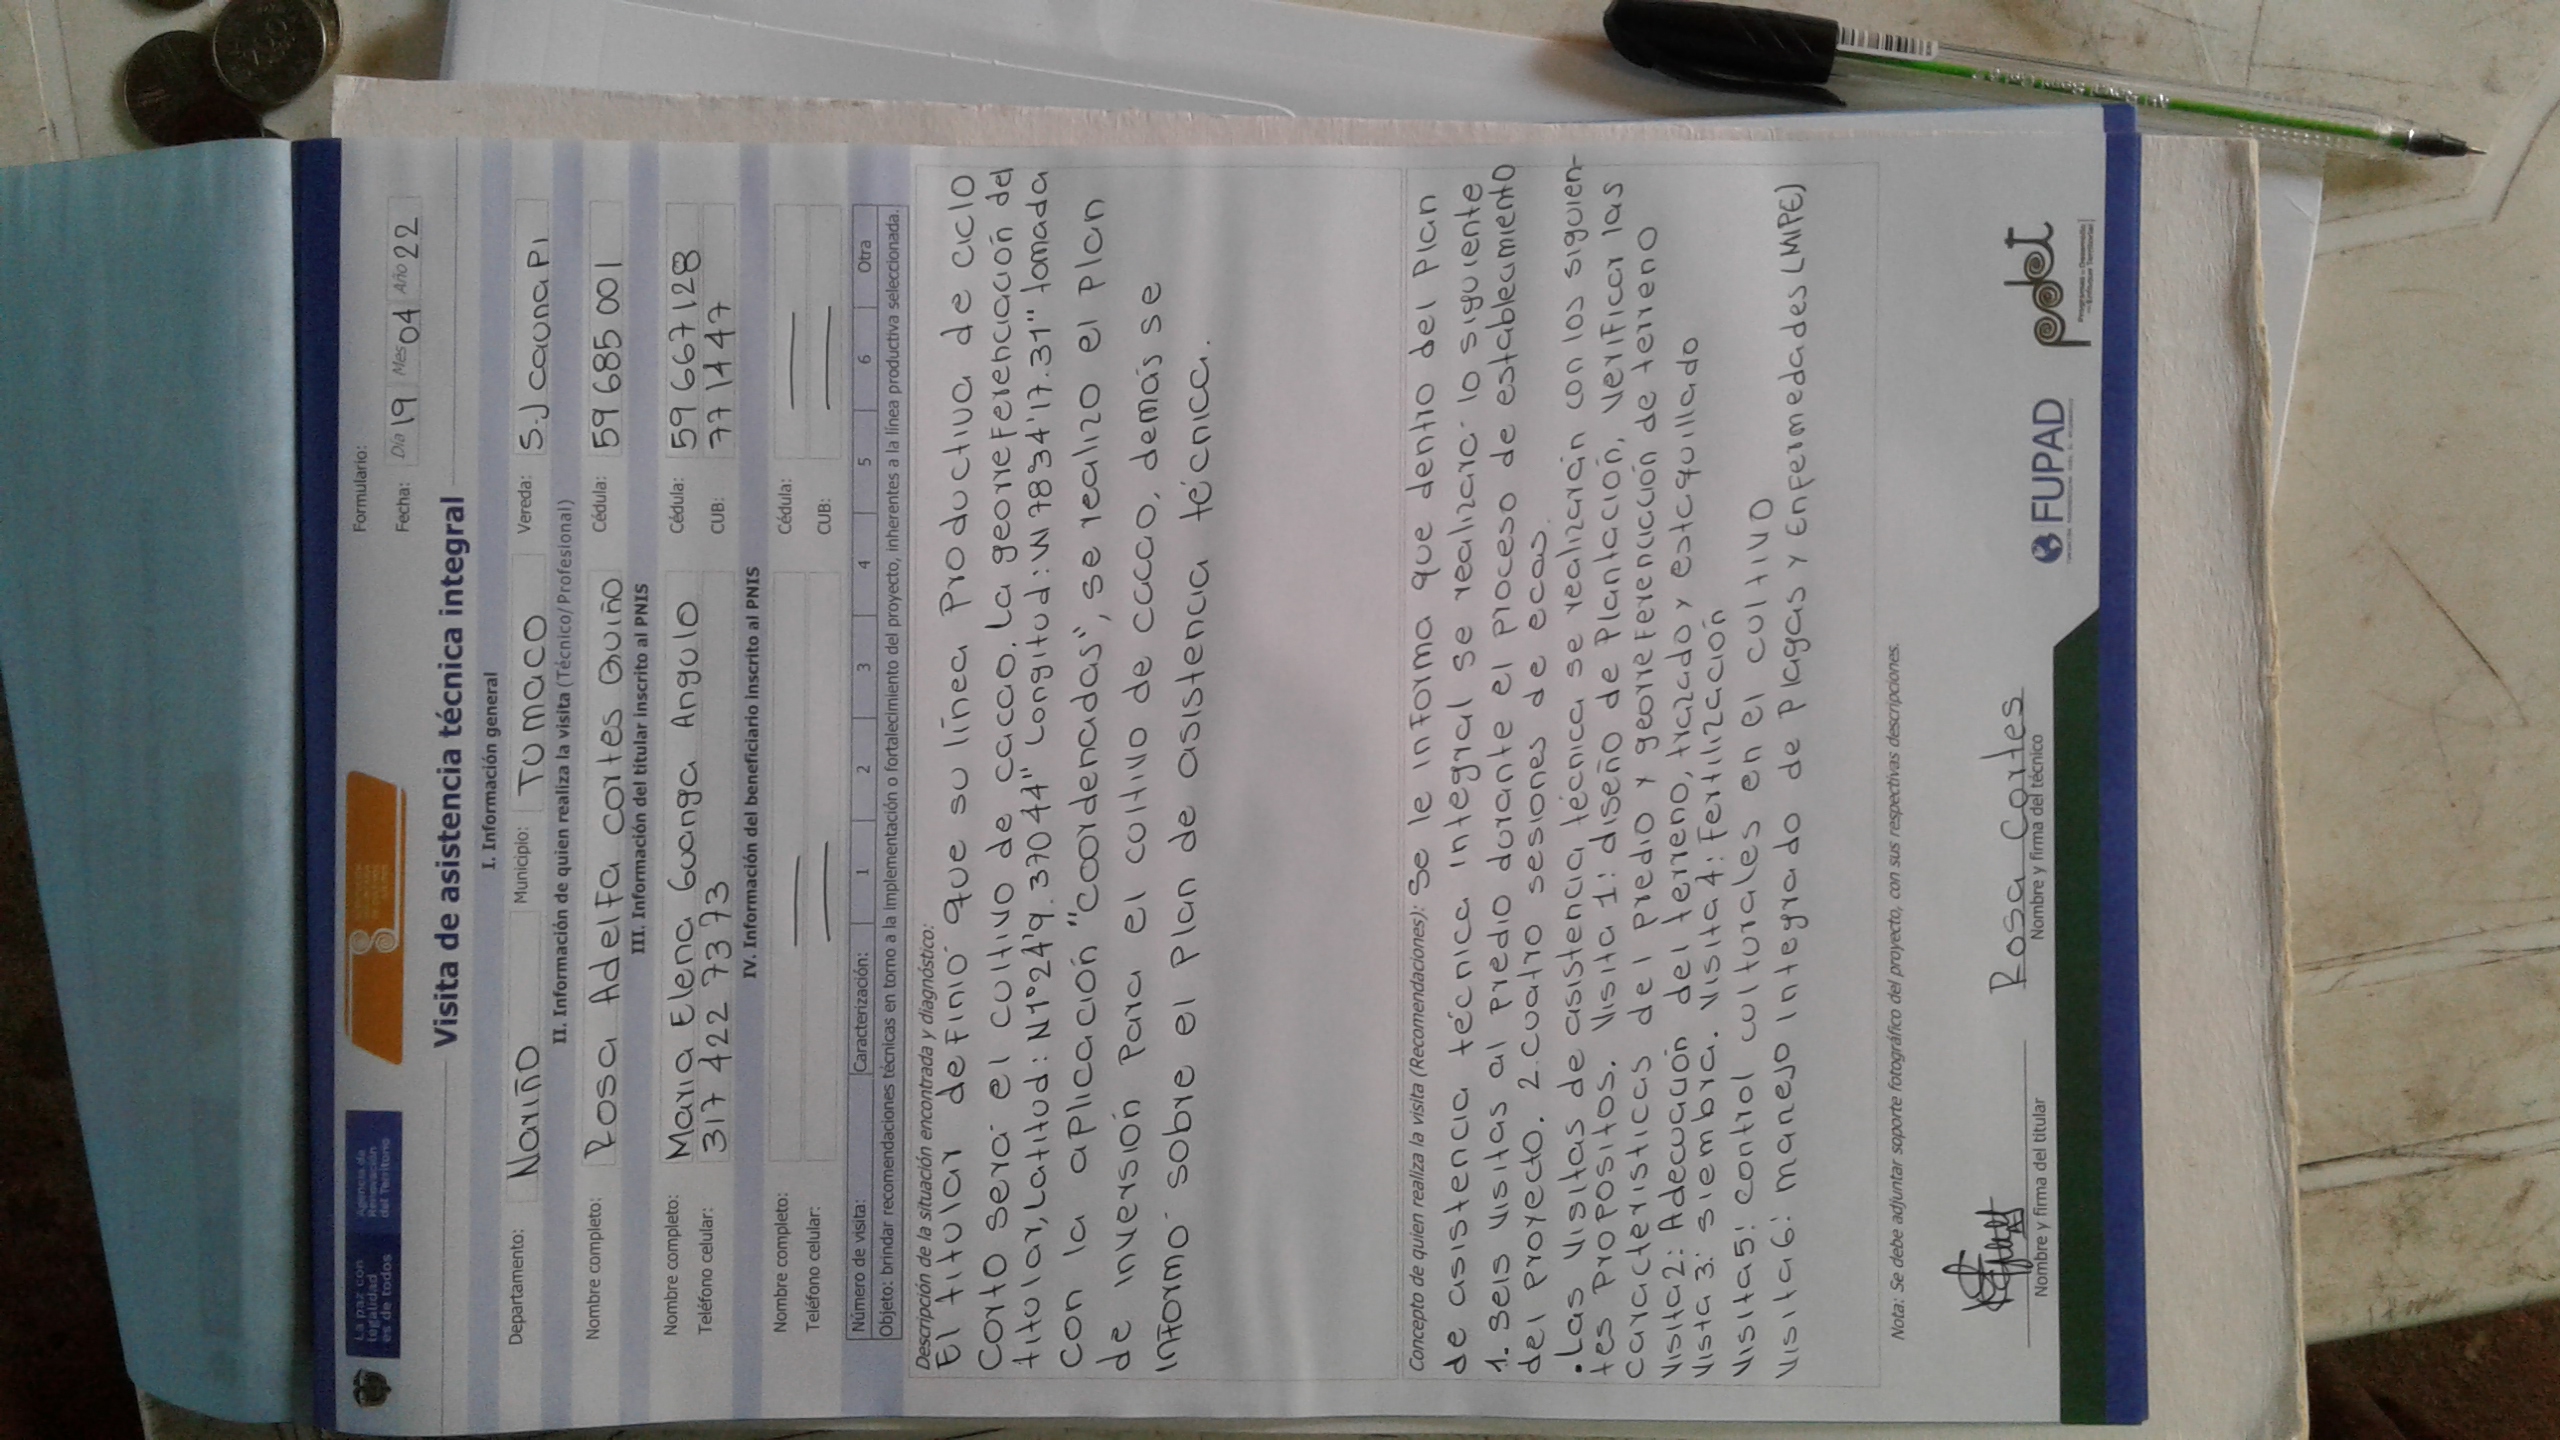 La paz con
legalidad
es de todos
Agencia de
Renovación
del Territorio
Formulario:
Fecha: Día 19 Mes 04 Año 22
Visita de asistencia técnica integral
I. Información general
Departamento: Nariño Municipio: Tumaco Vereda: S.J caunapi
II. Información de quien realiza la visita (Técnico/Profesional)
Nombre completo: Rosa Adelfa cortes Quiño Cédula: 59 685 001
III. Información del titular inscrito al PNIS
Nombre completo: Maria Elena Guanga Angulo Cédula: 59 667 128
Teléfono celular: 317 422 7373 CUB: 771447
IV. Información del beneficiario inscrito al PNIS
Nombre completo: Cédula:
Teléfono celular: CUB:
Número de visita: Caracterización: 1 2 3 4 5 6 Otra
Objeto: brindar recomendaciones técnicas en torno a la implementación o fortalecimiento del proyecto, inherentes a la línea productiva seleccionada.
Descripción de la situación encontrada y diagnóstico:
El titular definió que su línea Productiva de ciclo
Corto será el cultivo de cacao. La georreferenciación del
titular, Latitud: N1°24'9.37044" Longitud: W 78 34'17.31" tomada
Con la aplicación "coordenadas", se realizo el plan
de inversión Para el cultivo de cacao, demás se
informó sobre el Plan de asistencia técnica.
Concepto de quien realiza la visita (Recomendaciones): Se le informa que dentro del Plan
de asistencia técnica integral se realizará lo siguiente
1. Seis visitas al Predio durante el proceso de establecimiento
del Proyecto. 2. Cuatro sesiones de ecas.
• Las visitas de asistencia técnica se realizarán con los siguien-
tes Propositos. Visita 1: diseño de Plantación, verificar las
características del predio y georreferenciación de terreno
Visita 2: Adecuación del terreno, trazado y estaquillado
Vista 3: siembra. Visita 4: Fertilización
Visita 5: control culturales en el cultivo
Visita 6: manejo integrado de Plagas y Enfermedades (MIPE)
Nota: Se debe adjuntar soporte fotográfico del proyecto, con sus respectivas descripciones.
Rosa Cortes
Nombre y firma del titular Nombre y firma del técnico
FUPAD
pdet
Programas de Desarrollo
con Enfoque Territorial